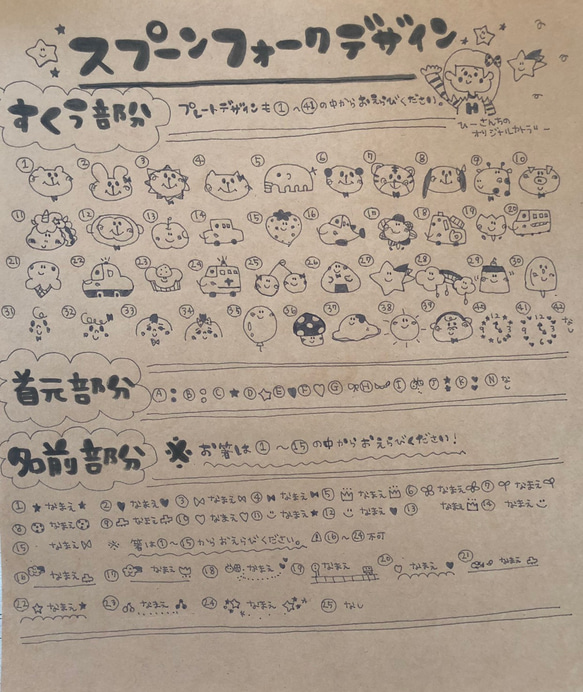 スプーンフォークデザイン
すくう部分
プレートデザインも①〜㊶の中からおえらびください。
ひーさんちの
オリジナルカトラリー
① ② ③ ④ ⑤ ⑥ ⑦ ⑧ ⑨ ⑩
⑪ ⑫ ⑬ ⑭ ⑮ ⑯ ⑰ ⑱ ⑲ ⑳
㉑ ㉒ ㉓ ㉔ ㉕ ㉖ ㉗ ㉘ ㉙ ㉚
㉛ ㉜ ㉝ ㉞ ㉟ ㊱ ㊲ ㊳ ㊴ ㊵ ㊶ ㊷ なし
首元部分
Ⓐ Ⓑ Ⓒ ★ Ⓓ ☆ Ⓔ ♥ Ⓕ ♡ Ⓖ Ⓗ Ⓘ Ⓙ Ⓚ Ⓝ なし
名前部分
※ お箸は①〜⑮の中からおえらびください!
① ★なまえ★ ② ♥なまえ♥ ③ なまえ ④ なまえ ⑤ なまえ ⑥ なまえ ⑦ なまえ
⑧ なまえ ⑨ なまえ ⑩ ♡なまえ♡ ⑪ なまえ★ ⑫ なまえ♥ ⑬ なまえ ⑭ なまえ
⑮ なまえ ※ 箸は①〜⑮からおえらびください。 ⚠⑯〜㉔不可
⑯ なまえ ⑰ なまえ ⑱ なまえ ⑲ なまえ ⑳ なまえ♡ ㉑ なまえ
㉒ ☆なまえ★ ㉓ なまえ ㉔ なまえ ㉕ なし